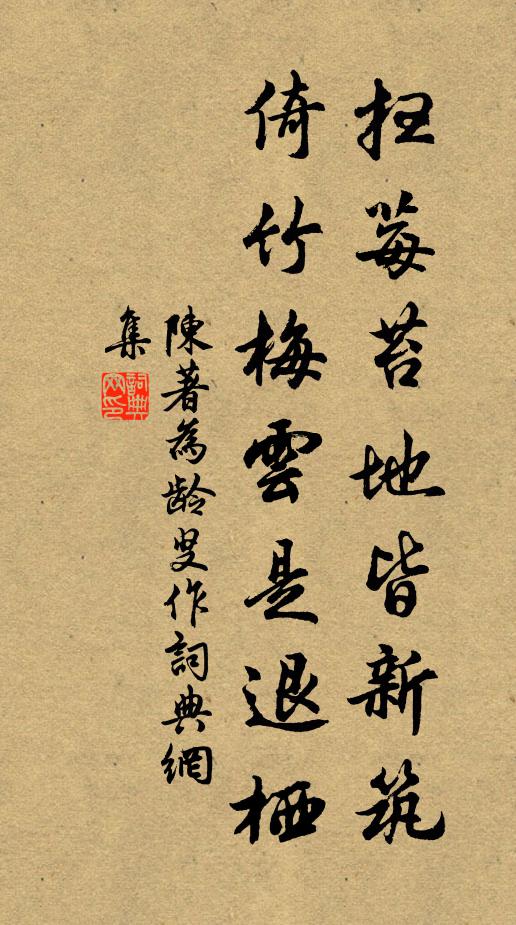 扫莓苔地皆新筑
倚竹梅雲是退栖
陳著為龄叟作詞典網
集
詞典網印